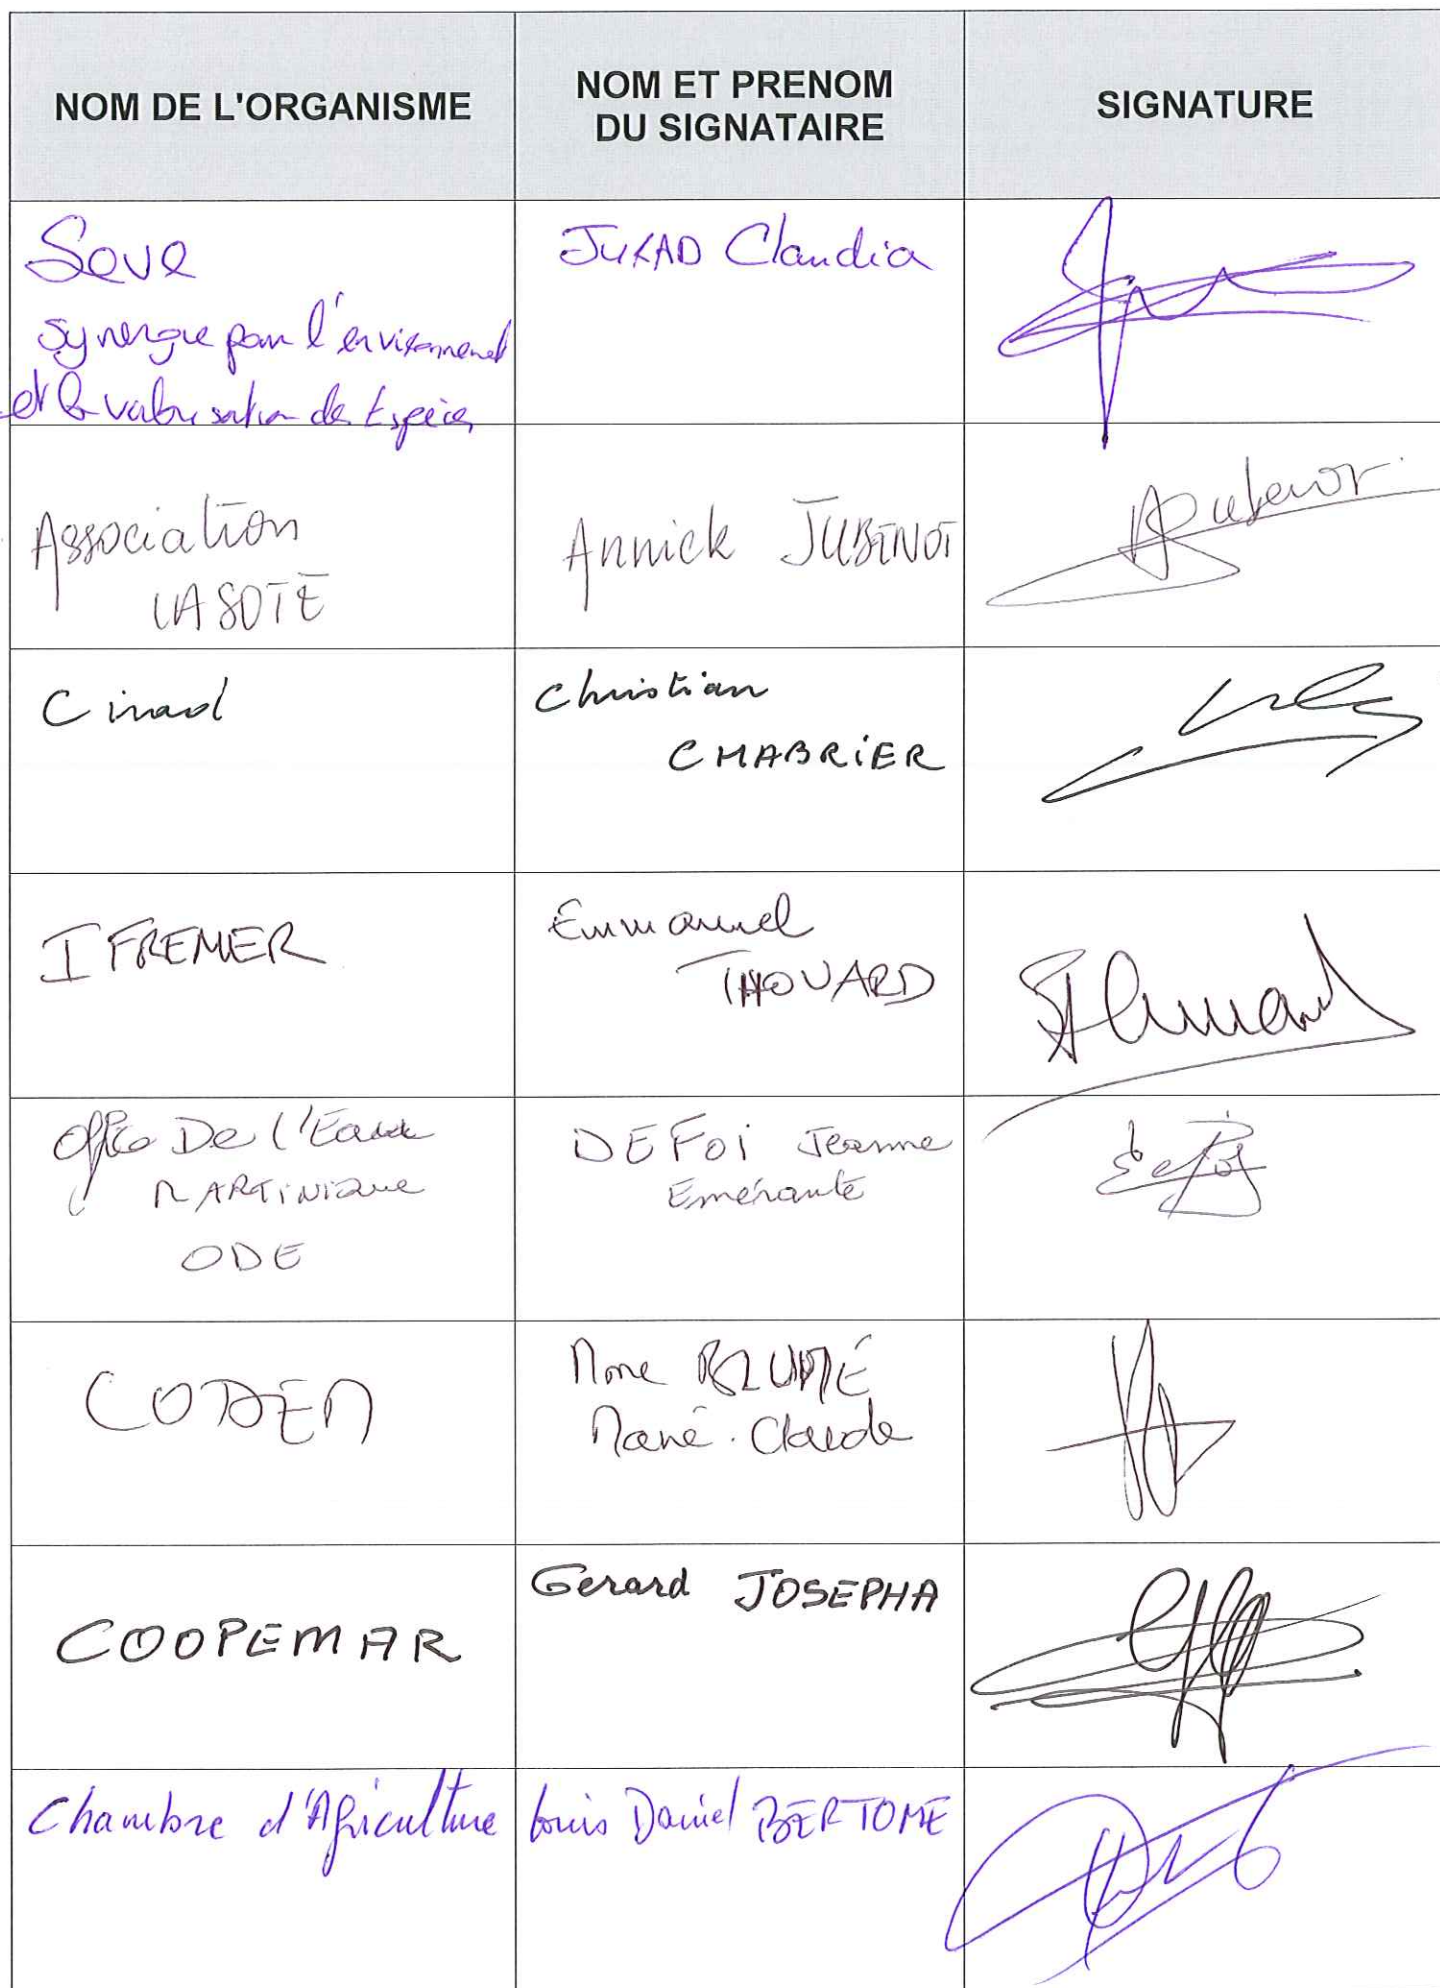 NOM DE L'ORGANISME
NOM ET PRENOM
DU SIGNATAIRE
SIGNATURE
Seve
Synergie pour l'environnement
et la valorisation des Espèces
JURAD Claudia
Association
LASOTÈ
Annick JUBENOT
Cirad
Christian
CHABRIER
IFREMER
Emmanuel
THOUARD
Office De l'Eau
MARTINIQUE
ODE
DEFOI Jeanne
Emérante
CODEM
Mme BLUMÉ
Marie-Claude
COOPEMAR
Gerard JOSEPHA
Chambre d'Agriculture
Louis Daniel BERTOME